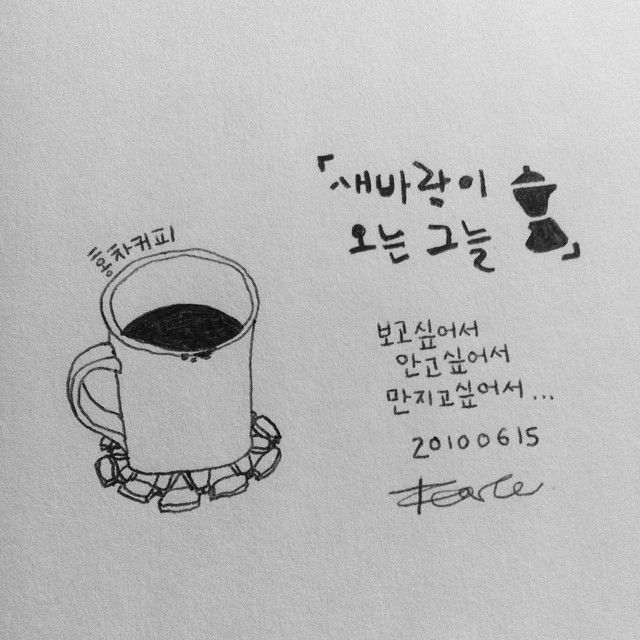 홍차커피
「새바람이
오는 그늘」
보고싶어서
안고싶어서
만지고싶어서...
20100615